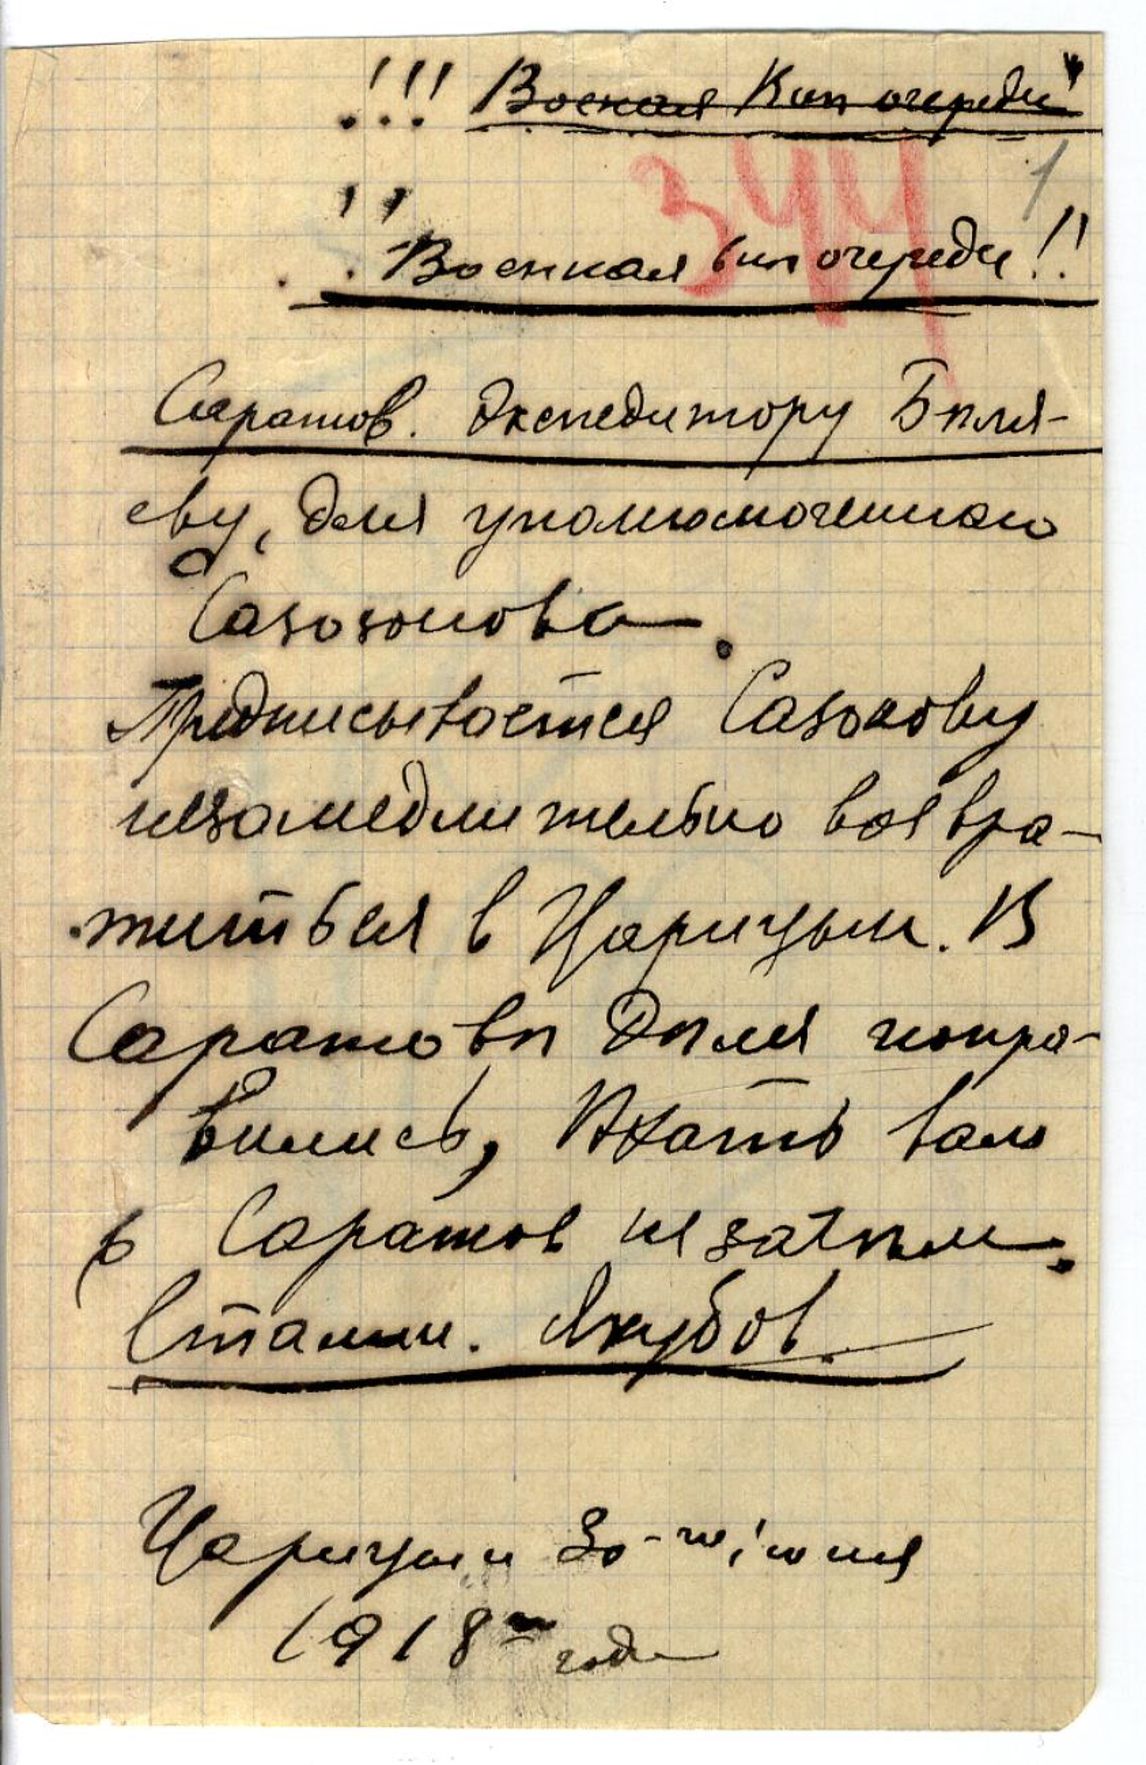 !!! Военная внѣ очереди
344
1
Военная внѣ очереди!!
Саратов. Экспедитору Бѣля-
еву, для уполномоченнаго
Сазонова.
Предписывается Сазонову
незамедлительно возвра-
титься в Царицын. В
Саратовѣ Дѣля
вились, Ждать вам
в Саратов незачѣм.
Сталин. Якубов.
Царицын 30-го іюня
1918 года